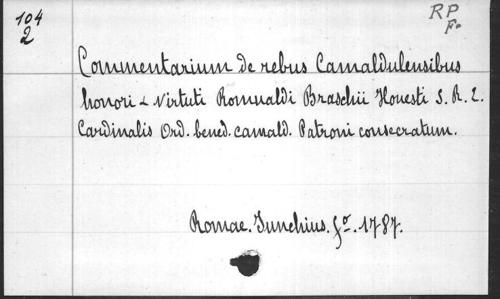 104
2
RP
F.
Commentarium de rebus Camaldulensibus
honori & Virtuti Romualdi Braschii Honesti S. R. E.
Cardinalis Ord. bened. camald. Patroni consecratum.
Romae. Junchius. fº. 1787.